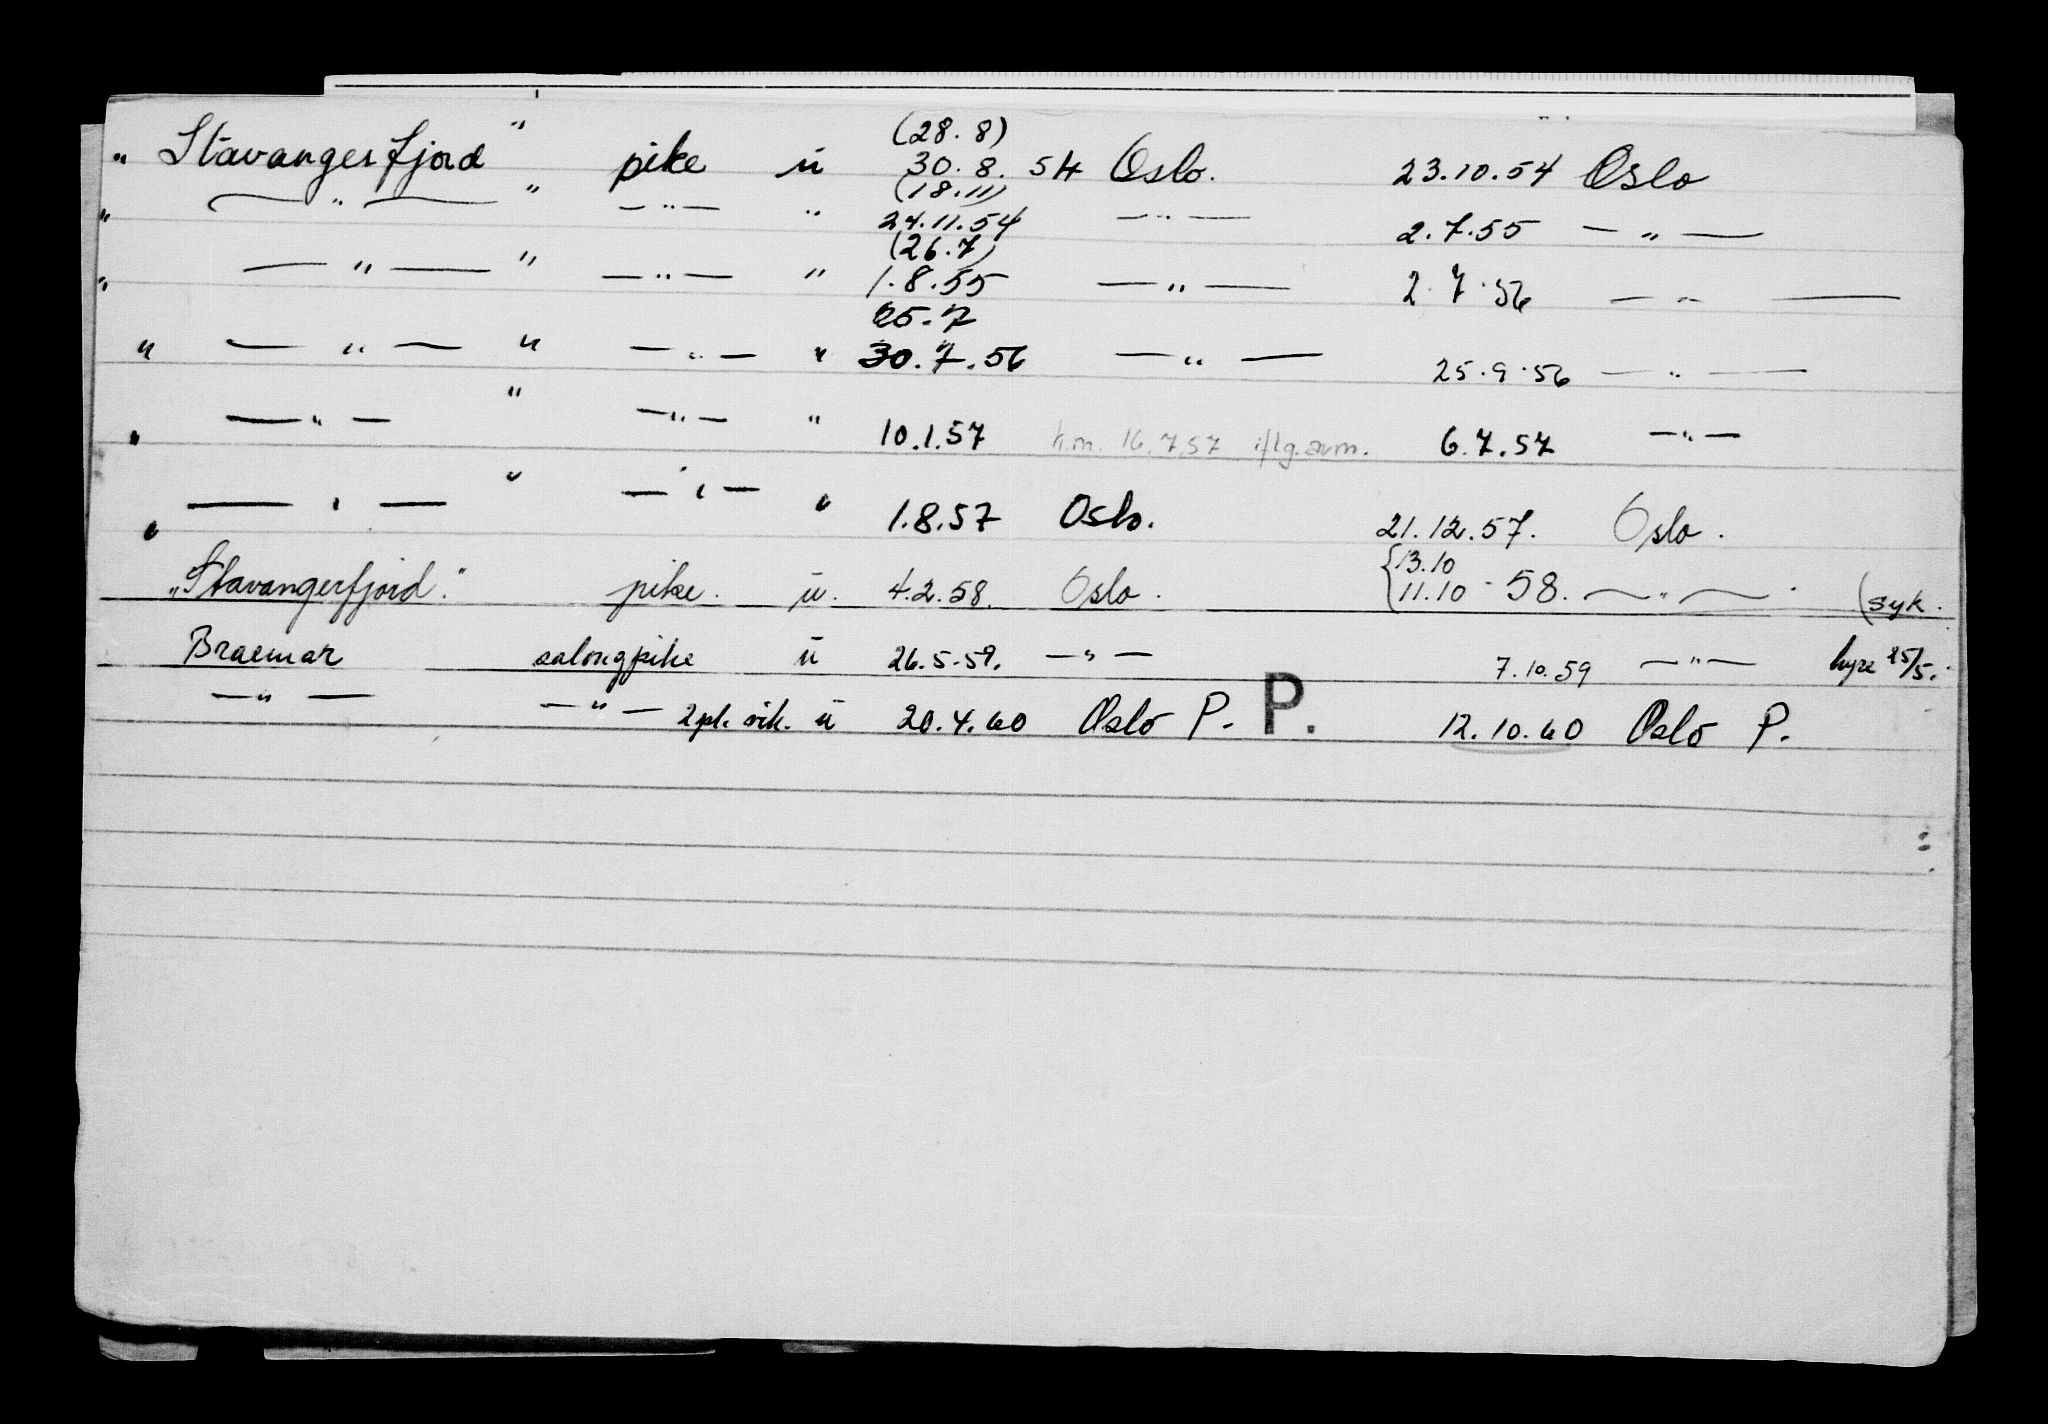 (28.8)
" Stavangerfjord " pike ü 30.8.54 Oslo. 23.10.54 Oslo
(18.11)
" — " — " — " — " 24.11.54 — " — 2.7.55 — " —
(26.7)
" — " — " — " — " 1.8.55 — " — 2.7.56 — " —
25.7
" — " — " — " — " 30.7.56 — " — 25.9.56 — " —
" — " — " — " — " 10.1.57 h.m. 16.7.57 iflg. avm. 6.7.57 — " —
" — " — " — " — " 1.8.57 Oslo. 21.12.57. Oslo.
{13.10
"Stavangerfjord." pike. ü. 4.2.58. Oslo. 11.10.58. — " — . (syk.
Braemar salongpike ü 26.5.59. — " — 7.10.59 — " — hyre 25/5.
— " — — " — 2 pk. vik. ü 20.4.60 Oslo P. P. 12.10.60 Oslo P.